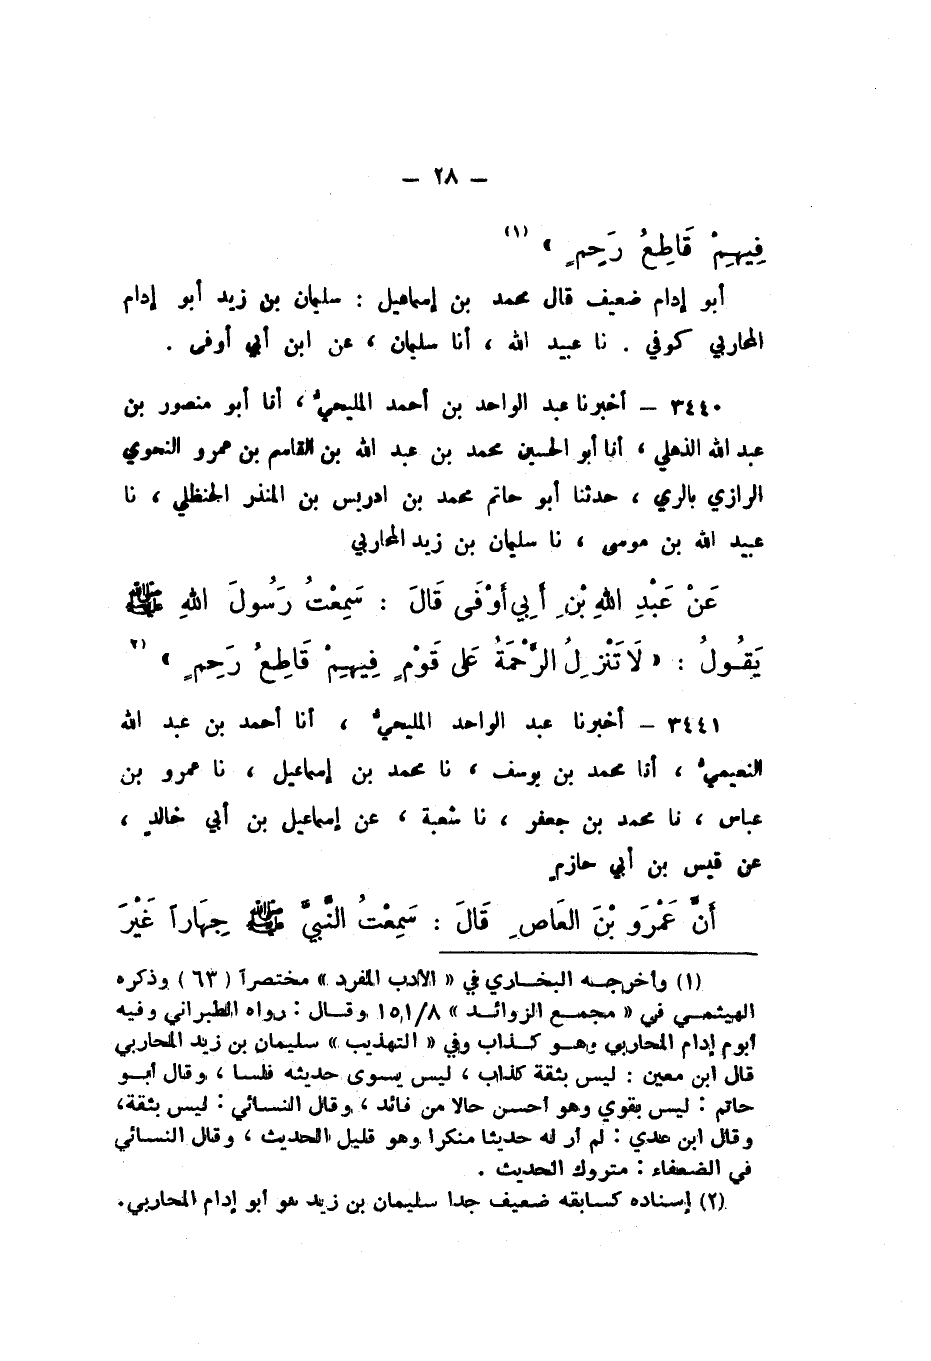 – ٢٨ –
فِيهِمْ قَاطِعُ رَحِمٍ » (١)
أبو إدام ضعيف قال محمد بن إسماعيل : سليمان بن زيد أبو إدام
المحاربي كوفي . نا عبيد الله ، أنا سليمان ، عن ابن أبي أوفى .
٣٤٤٠ – أخبرنا عبد الواحد بن أحمد المليحيُّ ، أنا أبو منصور بن
عبد الله الذهلي ، أنا أبو الحسين محمد بن عبد الله بن القاسم بن عمرو النحوي
الرازي بالري ، حدثنا أبو حاتم محمد بن ادريس بن المنذر الحنظلي ، نا
عبيد الله بن موسى ، نا سليمان بن زيد المحاربي
عَنْ عَبْدِ اللهِ بْنِ أَبِي أَوْفَى قَالَ : سَمِعْتُ رَسُولَ اللهِ ﷺ
يَقُولُ : « لَا تَنْزِلُ الرَّحْمَةُ عَلَى قَوْمٍ فِيهِمْ قَاطِعُ رَحِمٍ » (٢
٣٤٤١ – أخبرنا عبد الواحد المليحيُّ ، أنا أحمد بن عبد الله
النعيميُّ ، أنا محمد بن يوسف ، نا محمد بن إسماعيل ، نا عمرو بن
عباس ، نا محمد بن جعفر ، نا شعبة ، عن إسماعيل بن أبي خالدٍ ،
عن قيس بن أبي حازمٍ
أَنَّ عَمْرَو بْنَ العَاصِ قَالَ : سَمِعْتُ النَّبِيَّ ﷺ جِهَاراً غَيْرَ
(١) وأخرجه البخاري في « الأدب المفرد » مختصراً ( ٦٣ ) وذكره
الهيثمي في « مجمع الزوائد » ١٥١/٨ وقال : رواه الطبراني وفيه
أبوم إدام المحاربي وهو كذاب وفي « التهذيب » سليمان بن زيد المحاربي
قال ابن معين : ليس بثقة كذاب ، ليس يسوى حديثه فلسا ، وقال أبو
حاتم : ليس بقوي وهو أحسن حالا من فائد ، وقال النسائي : ليس بثقة،
وقال ابن عدي : لم أر له حديثا منكرا وهو قليل الحديث ، وقال النسائي
في الضعفاء : متروك الحديث .
(٢) إسناده كسابقه ضعيف جدا سليمان بن زيد هو أبو إدام المحاربي.